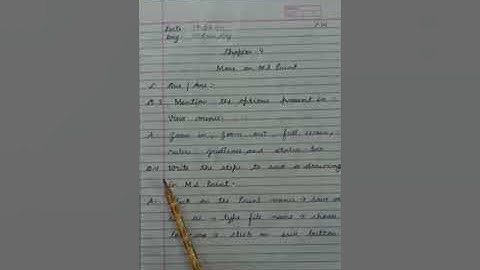 Date:
Day:
Chapter-4
More on MS Paint
Que / Ans :-
Mention the options present in
View menu.
A. Zoom in, Zoom out, full screen,
ruler, gridlines and status bar
Write the steps to save a drawing
in MS Paint.
A. on the Paint menu → save
as → type file name → choose
→ click on save button